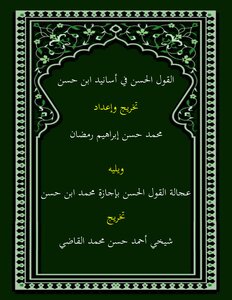 القول الحسن في أسانيد ابن حسن
تخريج وإعداد
محمد حسن إبراهيم رمضان
ويليه
عجالة القول الحسن بإجازة محمد ابن حسن
تخريج
شيخي أحمد حسن محمد القاضي